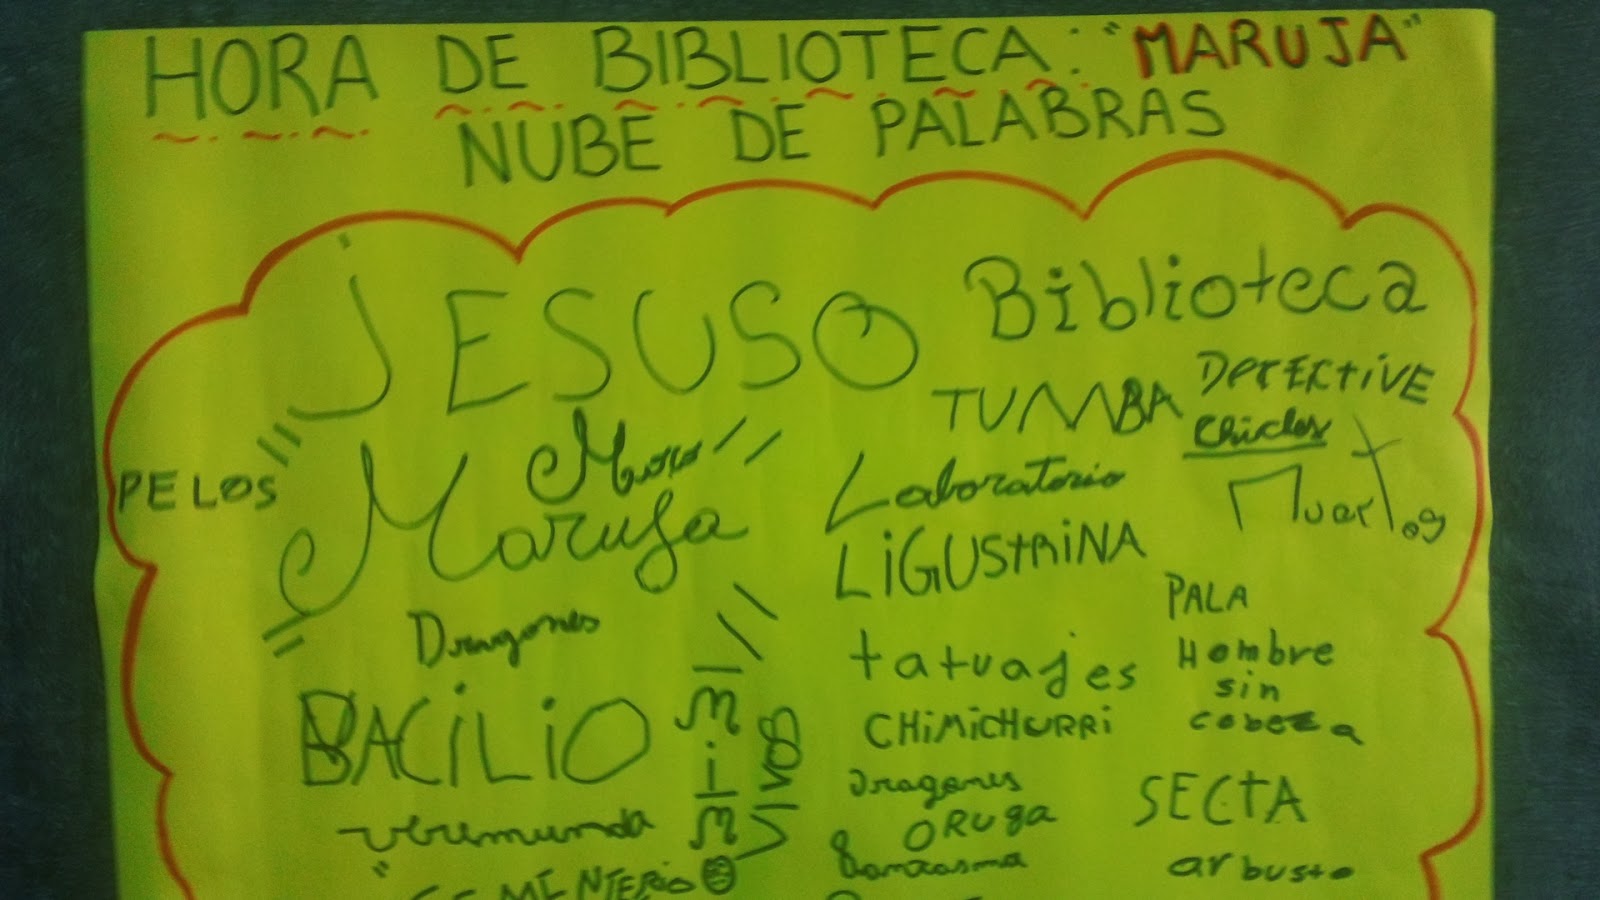 HORA DE BIBLIOTECA: "MARUJA"
NUBE DE PALABRAS
JESUSO
Biblioteca
TUMBA
DETECTIVE
Chicles
PELOS
Maruja
Laboratorio
Muertos
LIGUSTRINA
PALA
Dragones
tatuajes
Hombre
sin
cobeza
BACILIO
CHIMICHURRI
VIVOS
Dragones
SECTA
ORUGa
veremunda
arbusto
CEMENTERIO